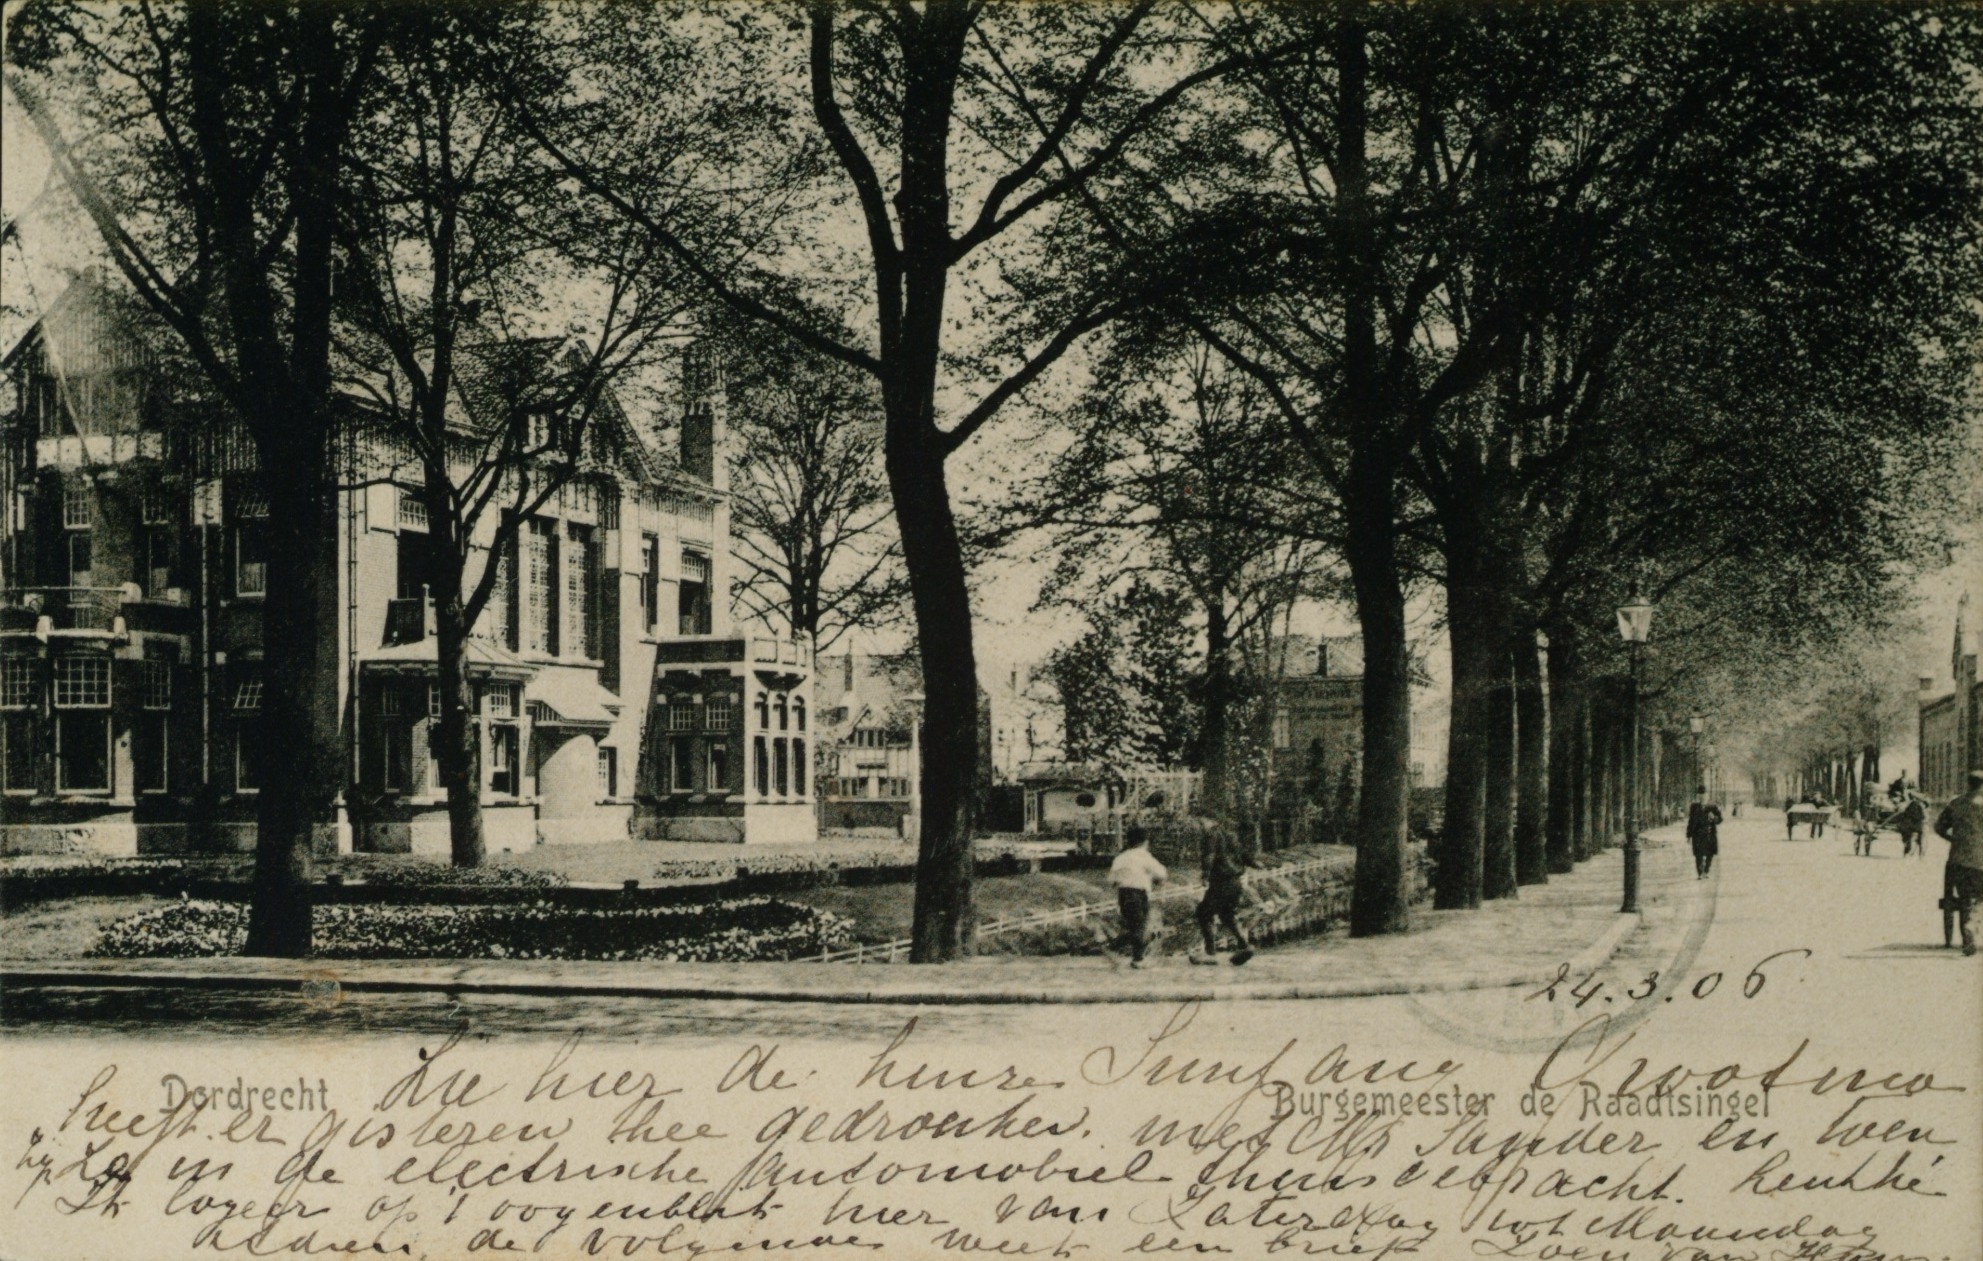 24.3.06
Dordrecht
Burgemeester de Raadtsingel
Zie hier de huize Grootma
heeft er gisteren thee gedronken. met Mr Sander en toen
Ze in de electrische automobiel thuis gebracht. Leuk hè
Ik logeer op 't oogenblik hier van Zaterdag tot Maandag
de volgende week een brief Zoen van